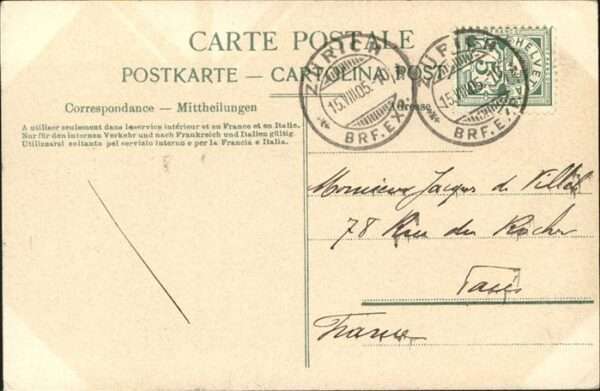 CARTE POSTALE
POSTKARTE — CARTOLINA POST
Correspondance — Mittheilungen
Adresse
A utiliser seulement dans le service intérieur et en France et en Italie.
Nur für den internen Verkehr und nach Frankreich und Italien gültig.
Utilizzarsi soltanto pel servizio interno e per la Francia e Italia.
ZÜRICH
15.VIII.05.
BRF.EXP.
ZÜRICH
15.VIII.05.
BRF.EXP.
HELVETIA
5
Monsieur Jacques de
78 Rue du Rocher
Paris
France